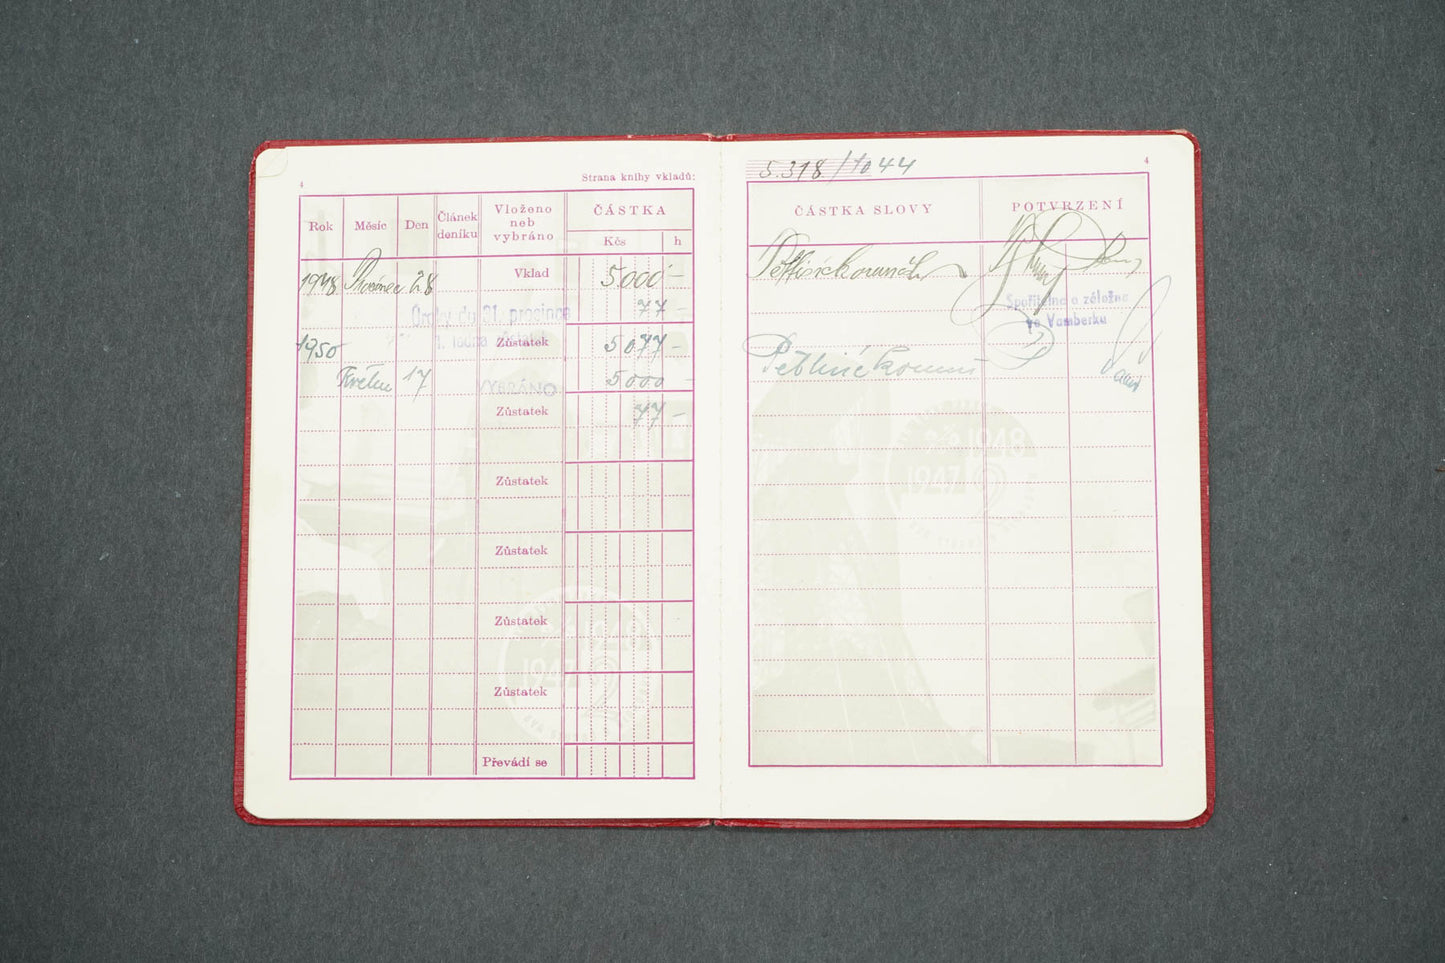 4
Strana knihy vkladů:
Rok Měsíc Den Článek deníku Vloženo neb vybráno ČÁSTKA
Kčs h
1948 28 Vklad 5.000 —
Úroky do 31. prosince 77 —
1950 Zůstatek 5 077 —
Květen 17 VYBRÁNO 5 000 —
Zůstatek 77 —
Zůstatek
Zůstatek
Zůstatek
Zůstatek
Převádí se
5.318/1044
4
ČÁSTKA SLOVY POTVRZENÍ
Spořitelna a záložna
ve Vamberku